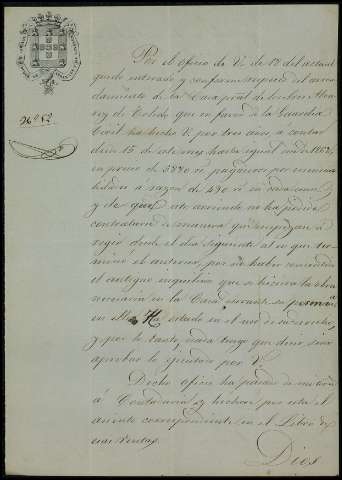 Nº 52
Por el oficio de V. de 12 del actual
quedo enterado y conforme respecto del arren
damiento de la Casa
de Toledo que en favor de la Guardia
Civil ha hecho V. por tres años, a contar
desde 15 de este mes hasta igual dia de 1862,
en precio de 5880 rs pagaderos por
a razon de 490 rs en cada una;
y de que este arriendo no ha podido
contratarse de manera que empezase á
regir desde el dia siguiente al en que ter
minó el anterior, por no haber consentido
el antiguo inquilino que se hiciera la obra
necesaria en la Casa durante su perman
en Ha estado en el uso de su derecho,
y por lo tanto, nada tengo que decir, sino
aprobar lo ejecutado por V.
Dicho oficio ha pasado de mi orden
á Contaduría y hecho por esta el
asiento correspondiente en el Libro de
esas Rentas.
Dios